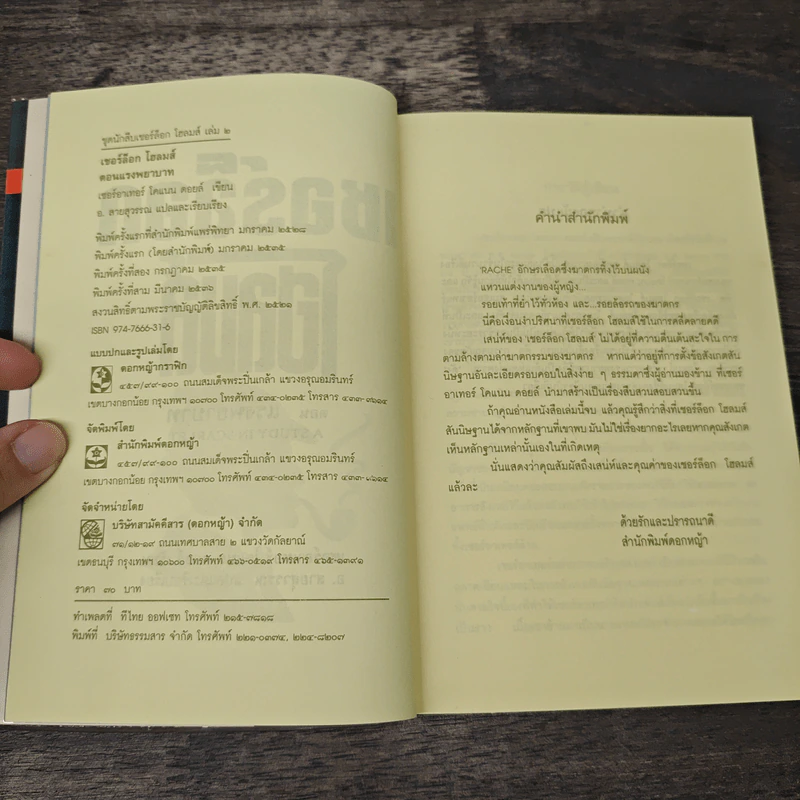 ชุดนักสืบเชอร์ล็อก โฮลมส์ เล่ม ๒
เชอร์ล็อก โฮลมส์
ตอนแรงพยาบาท
เซอร์อาเทอร์ โคแนน ดอยล์ เขียน
อ. สายสุวรรณ แปลและเรียบเรียง
พิมพ์ครั้งแรกที่สำนักพิมพ์แพร่พิทยา มกราคม ๒๕๒๘
พิมพ์ครั้งแรก (โดยสำนักพิมพ์) มกราคม ๒๕๓๕
พิมพ์ครั้งที่สอง กรกฎาคม ๒๕๓๕
พิมพ์ครั้งที่สาม มีนาคม ๒๕๓๖
สงวนลิขสิทธิ์ตามพระราชบัญญัติลิขสิทธิ์ พ.ศ. ๒๕๒๑
ISBN 974-7666-31-6
แบบปกและรูปเล่มโดย
ดอกหญ้ากราฟิก
๔๕๓/๙๙-๑๐๐ ถนนสมเด็จพระปิ่นเกล้า แขวงอรุณอมรินทร์
เขตบางกอกน้อย กรุงเทพฯ ๑๐๗๐๐ โทรศัพท์ ๔๓๔-๐๒๓๕ โทรสาร ๔๓๓-๙๖๑๔
จัดพิมพ์โดย
สำนักพิมพ์ดอกหญ้า
๔๕๓/๙๙-๑๐๐ ถนนสมเด็จพระปิ่นเกล้า แขวงอรุณอมรินทร์
เขตบางกอกน้อย กรุงเทพฯ ๑๐๗๐๐ โทรศัพท์ ๔๓๔-๐๒๓๕ โทรสาร ๔๓๓-๙๖๑๔
จัดจำหน่ายโดย
บริษัทสามัคคีสาร (ดอกหญ้า) จำกัด
๓๑/๑๒-๑๙ ถนนเทศบาลสาย ๒ แขวงวัดกัลยาณ์
เขตธนบุรี กรุงเทพฯ ๑๐๖๐๐ โทรศัพท์ ๔๖๖-๐๕๑๙ โทรสาร ๔๖๕-๑๓๙๑
ราคา ๗๐ บาท
ทำเพลตที่ ทีไทย ออฟเซท โทรศัพท์ ๒๑๕-๗๘๑๘
พิมพ์ที่ บริษัทธรรมสาร จำกัด โทรศัพท์ ๒๒๑-๐๓๗๔, ๒๒๔-๘๒๐๗
คำนำสำนักพิมพ์
'RACHE' อักษรเลือดซึ่งฆาตกรทิ้งไว้บนผนัง
แหวนแต่งงานของผู้หญิง...
รอยเท้าที่ย่ำไว้ทั่วห้อง และ...รอยล้อรถของฆาตกร
นี่คือเงื่อนงำปริศนาที่เชอร์ล็อก โฮลมส์ใช้ในการคลี่คลายคดี
เสน่ห์ของ เชอร์ล็อก โฮลมส์ ไม่ได้อยู่ที่ความตื่นเต้นสะใจใน การ
ตามล้างตามล่าฆาตกรรมของฆาตกร หากแต่ว่าอยู่ที่การตั้งข้อสังเกตสัน
นิษฐานอันละเอียดรอบคอบในสิ่งง่าย ๆ ธรรมดาซึ่งผู้อ่านมองข้าม ที่เซอร์
อาเทอร์ โคแนน ดอยล์ นำมาสร้างเป็นเรื่องสืบสวนสอบสวนขึ้น
ถ้าคุณอ่านหนังสือเล่มนี้จบ แล้วคุณรู้สึกว่าสิ่งที่เชอร์ล็อก โฮลมส์
สันนิษฐานได้จากหลักฐานที่เขาพบ มันไม่ใช่เรื่องยากอะไรเลยหากคุณสังเกต
เห็นหลักฐานเหล่านั้นเองในที่เกิดเหตุ
นั่นแสดงว่าคุณสัมผัสถึงเสน่ห์และคุณค่าของเชอร์ล็อก โฮลมส์
แล้วละ
ด้วยรักและปรารถนาดี
สำนักพิมพ์ดอกหญ้า